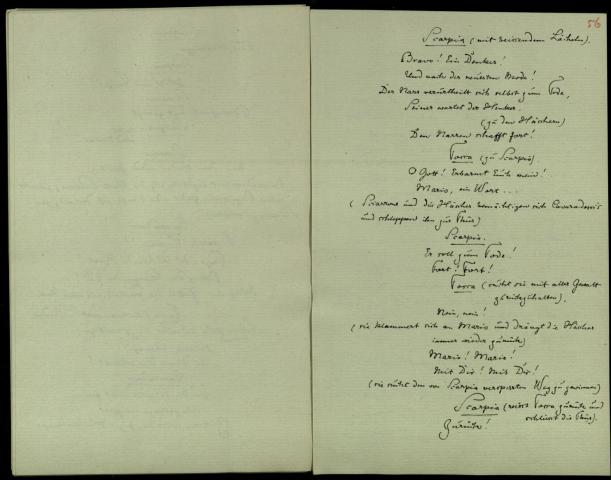 56
Scarpia (mit reissendem Lächeln).
Bravo! Ein Denker!
Und nach der neuesten Mode!
Der Narr verurtheilt sich selbst zum Tode,
Seiner wartet der Henker.
(zu den Häschern)
Den Narren schafft fort!
Tosca (zu Scarpia).
O Gott! Erbarmt Euch mein!
Mario, ein Wort...
(Sciarrone und die Häscher bemächtigen sich Cavaradossis
und schleppen ihn zur Thür)
Scarpia.
Er soll zum Tode!
Fort! Fort!
Tosca (sucht sie mit aller Gewalt
zurückzuhalten).
Nein, nein!
(sie klammert sich an Mario und drängt die Häscher
immer wieder zurück)
Mario! Mario!
Mit Dir! Mit Dir!
(sie sucht den von Scarpia versperrten Weg zu gewinnen)
Scarpia (reisst Tosca zurück und
schliesst die Thür).
Zurück!